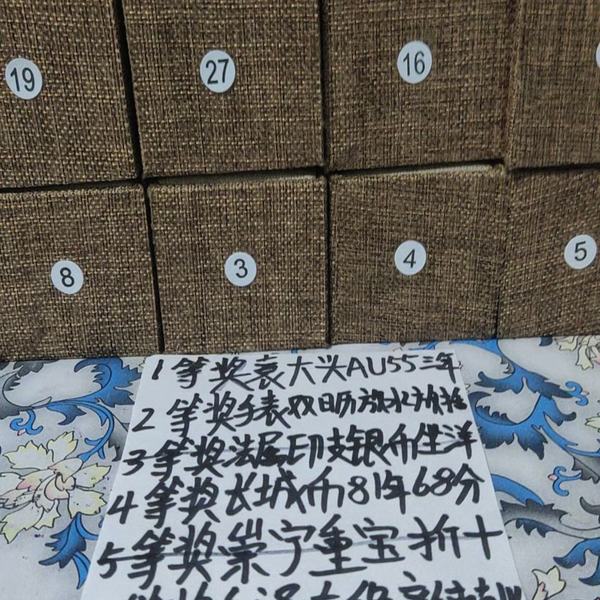 19
27
16
8
3
4
5
1等奖袁大头AU55三年
2等奖手表双日历防水
3等奖法属印支银币坐洋
4等奖长城币81年68分
5等奖崇宁重宝折十